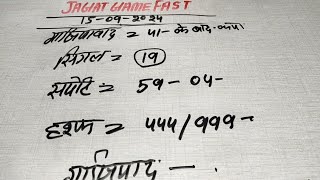 JAGAT GAME FAST
15-09-2024
गाजियाबाद = 41- के बाद
सिंगल = 19
सपोट = 59-04-
हरूफ = 444/999-
गाजियाबाद -